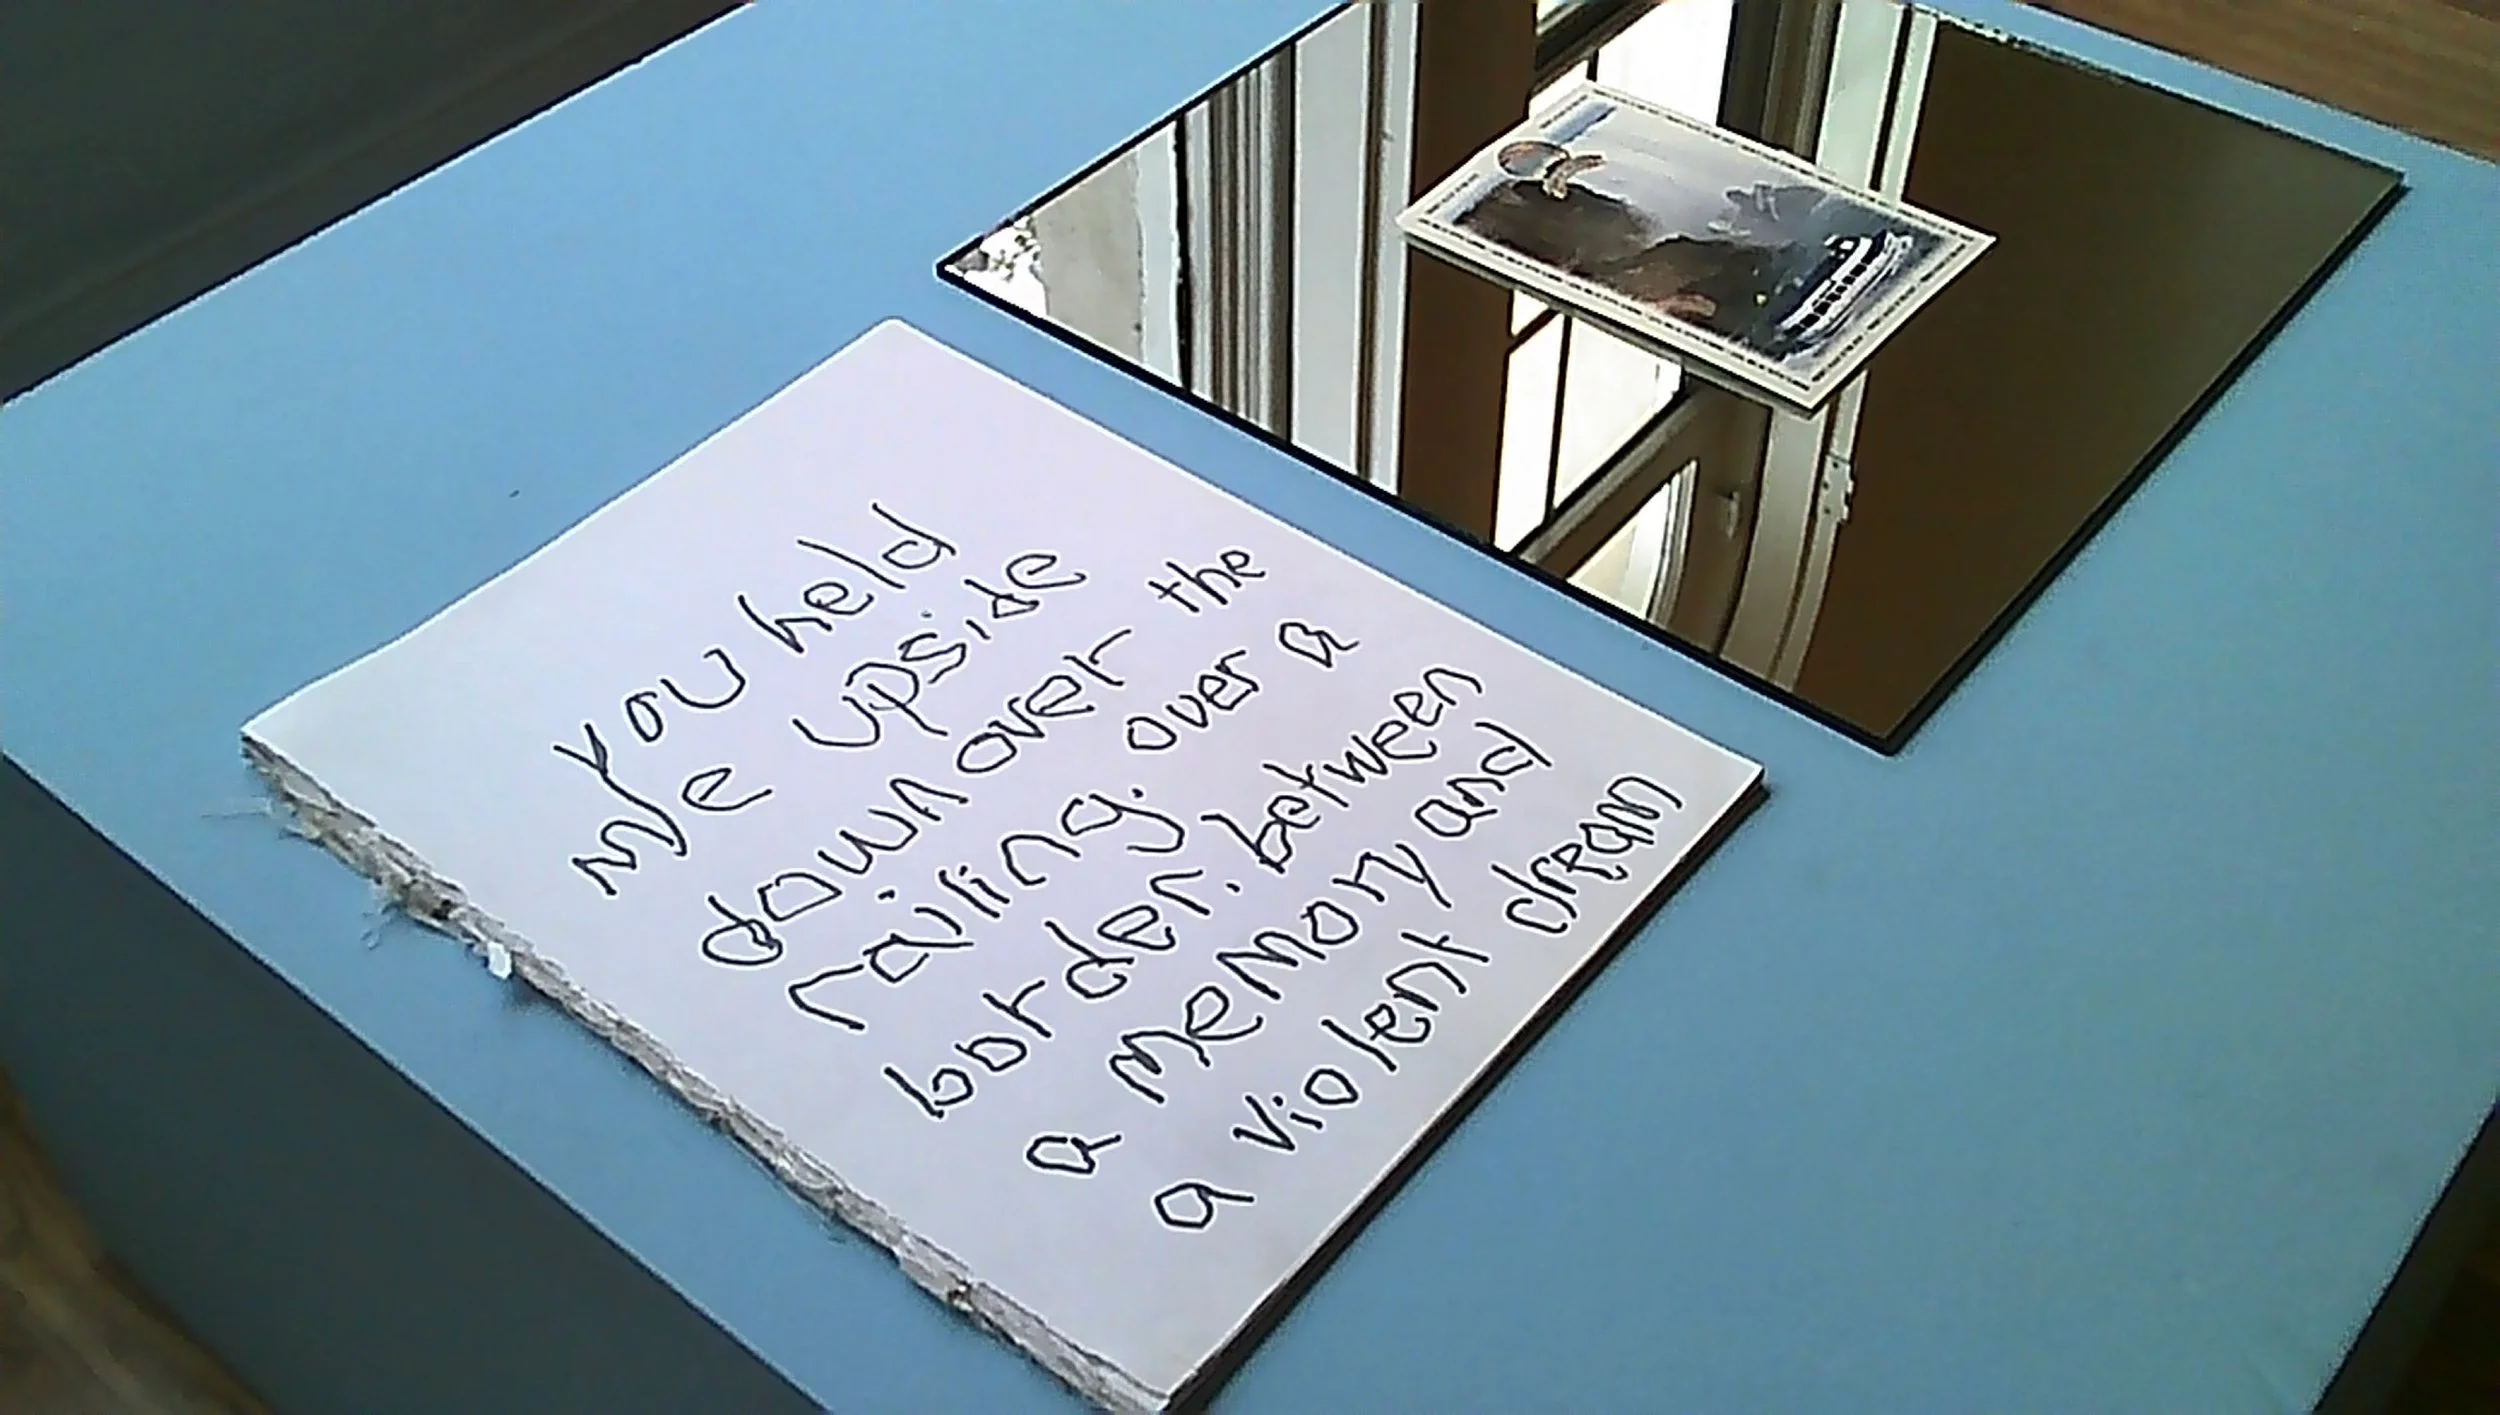 you held
me upside
down over the
railing. over a
border. between
a memory and
a violent dream